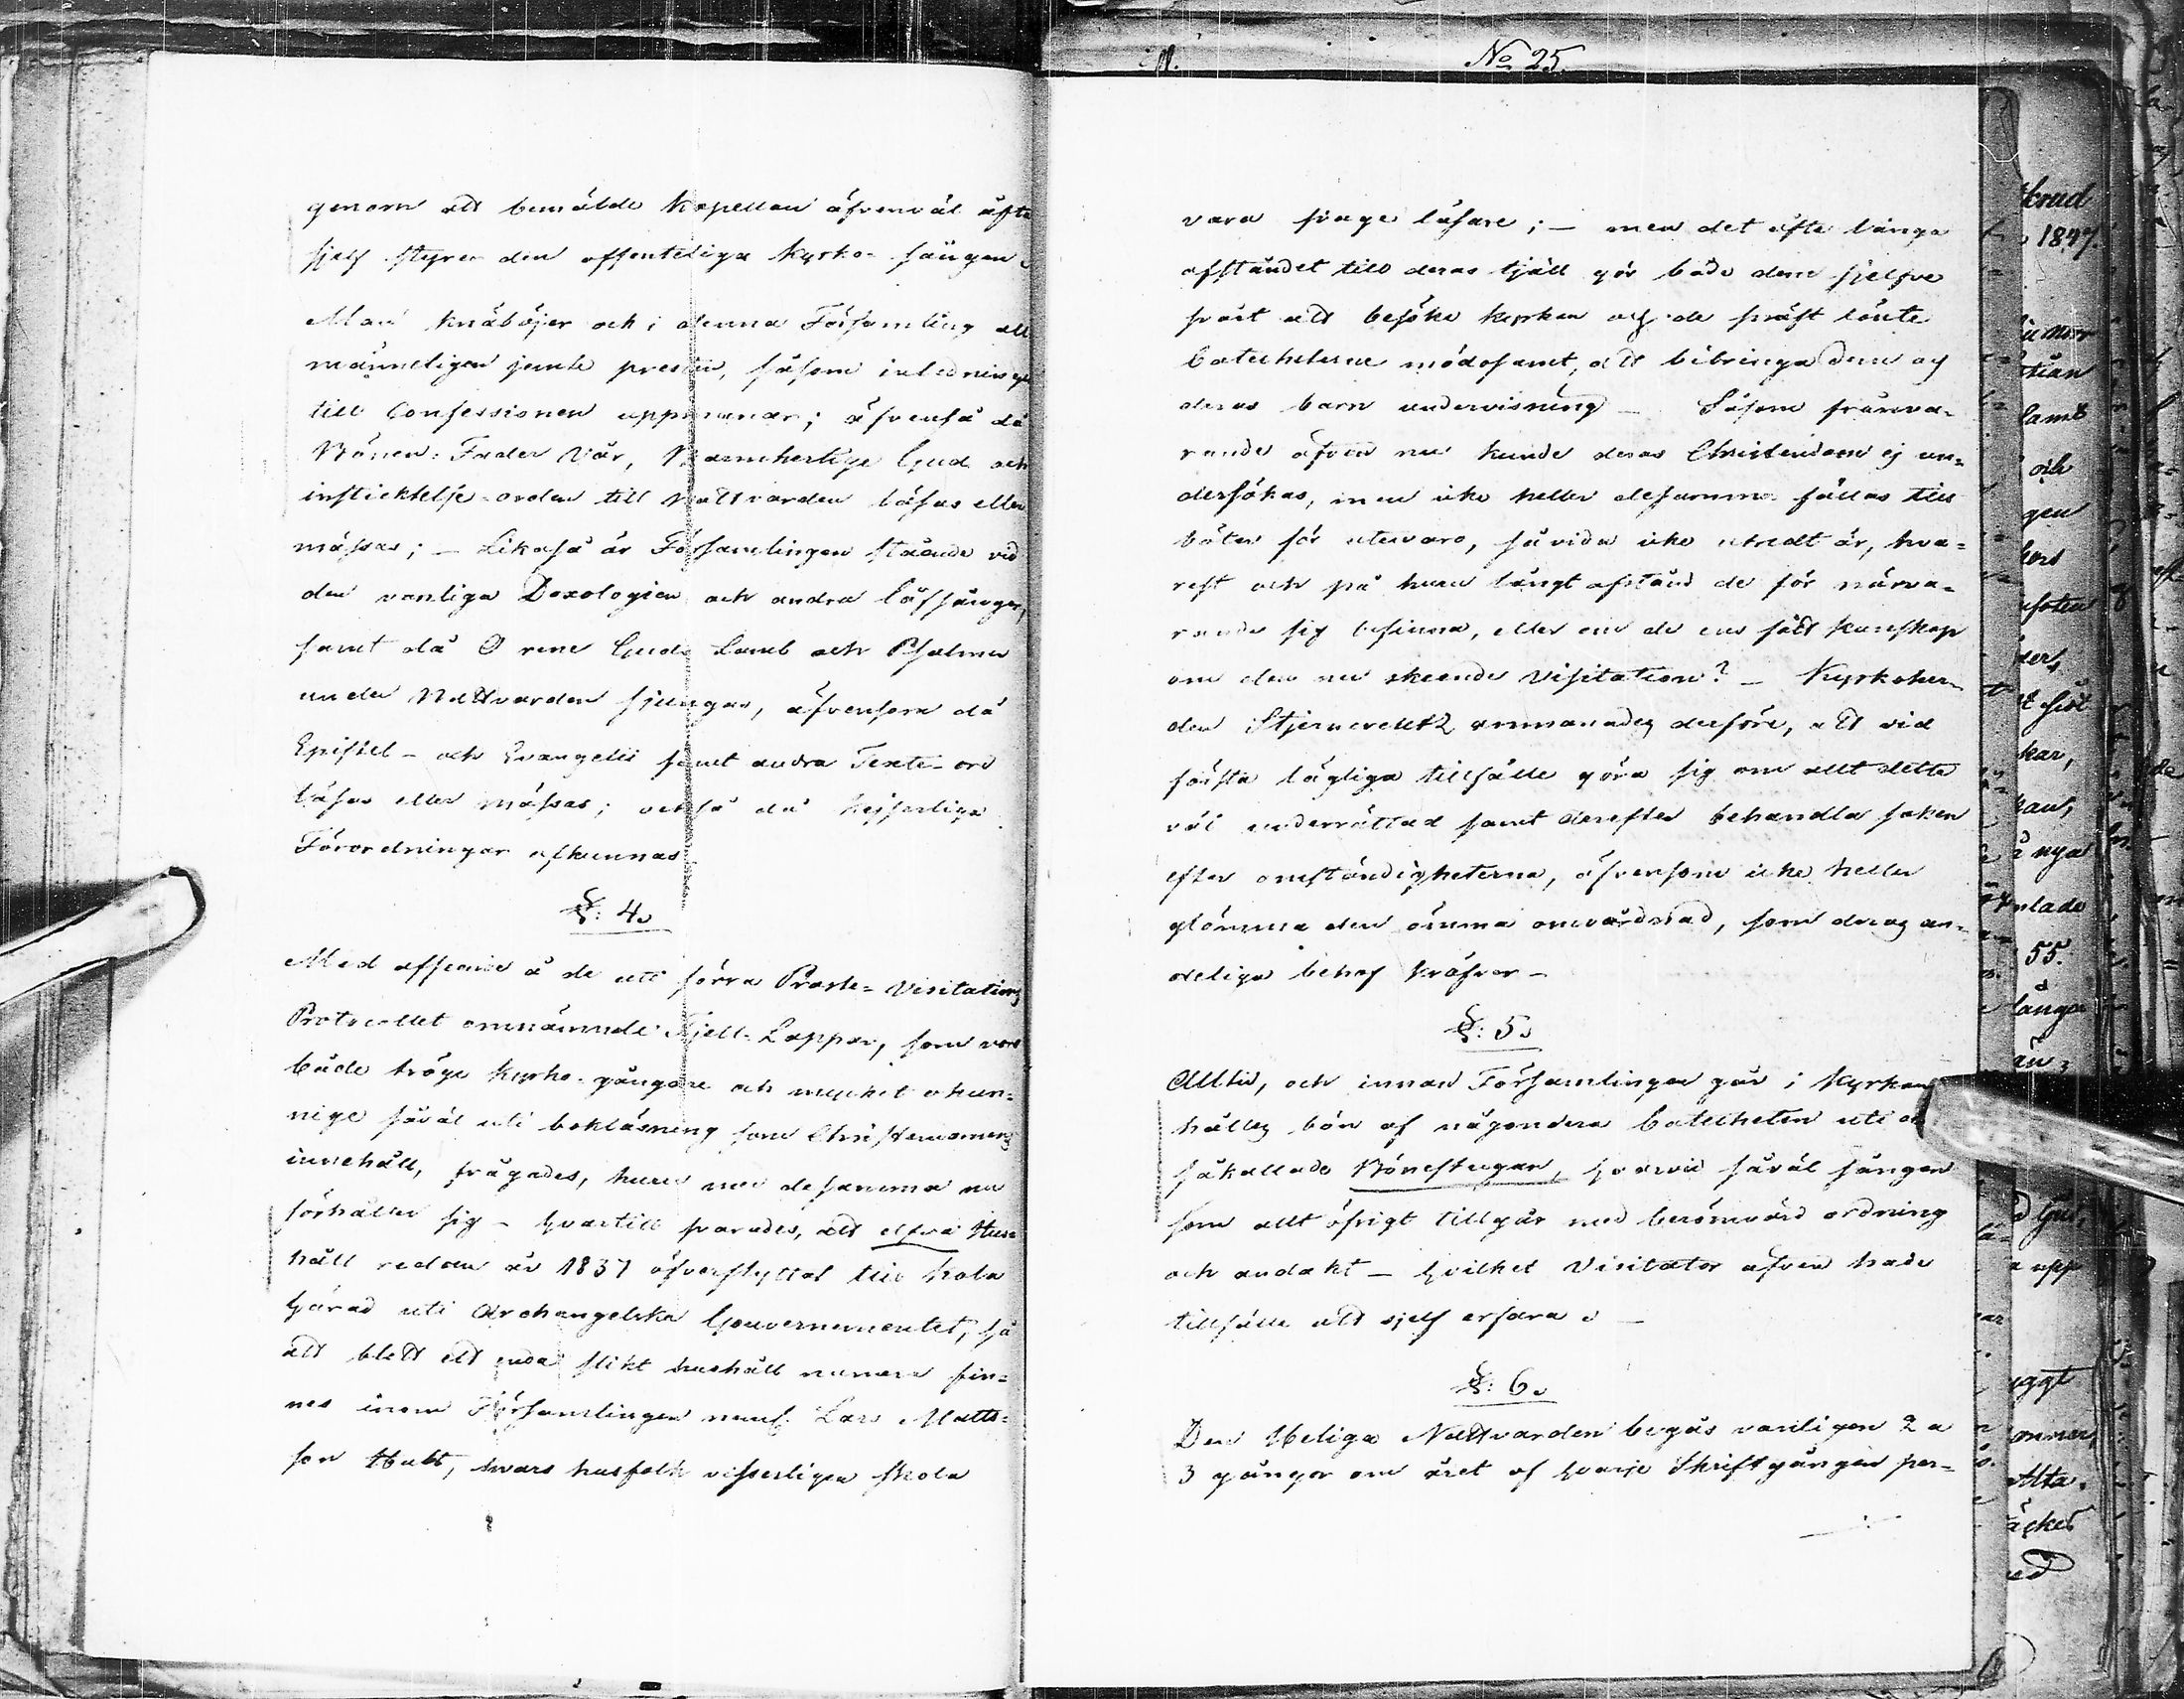 genom att bemälde Kapellan äfvenväl ofta
sjelf styrer den offenteliga Kyrko-sången.
Man knäböjer och i denna Församling all
männeligen jemte presten, såsom inledningen
till Confessionen uppmanar; äfvenså då
Bönen: Fader Vår, Barmhertige Gud och
instiktelse-orden till Nattvarden läsas eller
mässas; – Likaså är Församlingen stående vid
den vanliga Doxologien och andra Lofsånger,
samt då O rene Guds Lamb och Psalmer
under Nattvarden sjungas, äfvensom då
Epistel- och Evangelii samt andra Texte-ord
läsas eller mässas; också då Kejserliga
Förordningar afkunnas
§: 4.
Med afseende å de uti förra Proste-Visitations
Protocollet omnämnde Fjell-Lappar, som voro
både tröge Kyrko-gångare och mycket okun-
nige såväl uti bokläsning som Christendomens
innehåll, frågades, huru med desamma nu
förhåller sig – hvartill svarades, att elfva Hus-
håll redan år 1837 öfverflyttat till Kola
härad uti Archangelska Gouvernementet, så
att blott ett enda slikt hushåll numera fin-
nes inom Församlingen neml. Lars Matts-
son Halt, hvars husfolk visserligen skola
No 25.
vara svage läsare; – men det ofta långa
afståndet till deras tjäll gör både dem sjelfve
svårt att besöka kyrkan och de svagt lönte
Catecheterne mödosamt, att bibringa dem och
deras barn undervisning – Såsom frånva-
rande äfven nu kunde deras Christendom ej un-
dersökas, men icke heller desamma fällas till
böter för utevaro, såvida icke utredt är, hva-
rest och på huru långt afstånd de för närva-
rande sig befinna, eller om de ens fått kunskap
om den nu skeende Visitation? – Kyrkoher-
den Stjerncreutz anmanades derföre, att vid
första lägliga tillfälle göra sig om allt detta
väl underrättad samt derefter behandla saken
efter omständigheterna, äfvensom icke heller
glömma den ömma omvårdnad, som deras an-
deliga behof kräfver –
§: 5.
Alltid, och innan Församlingen går i Kyrkan
hålles bön af någondera Catecheten uti
såkallade Bönestugan, hvarvid såväl sången
som allt öfrigt tillgår med berömvärd ordning
och andakt – hvilket Visitator äfven hade
tillfälle att sjelf erfara. –
§: 6.
Den Heliga Nattvarden begås vanligen 2 a
3 gånger om året af hvarje Skriftgången per-
krud
1847.
lamb
och
gen
kar,
nya
55.
långa
upp